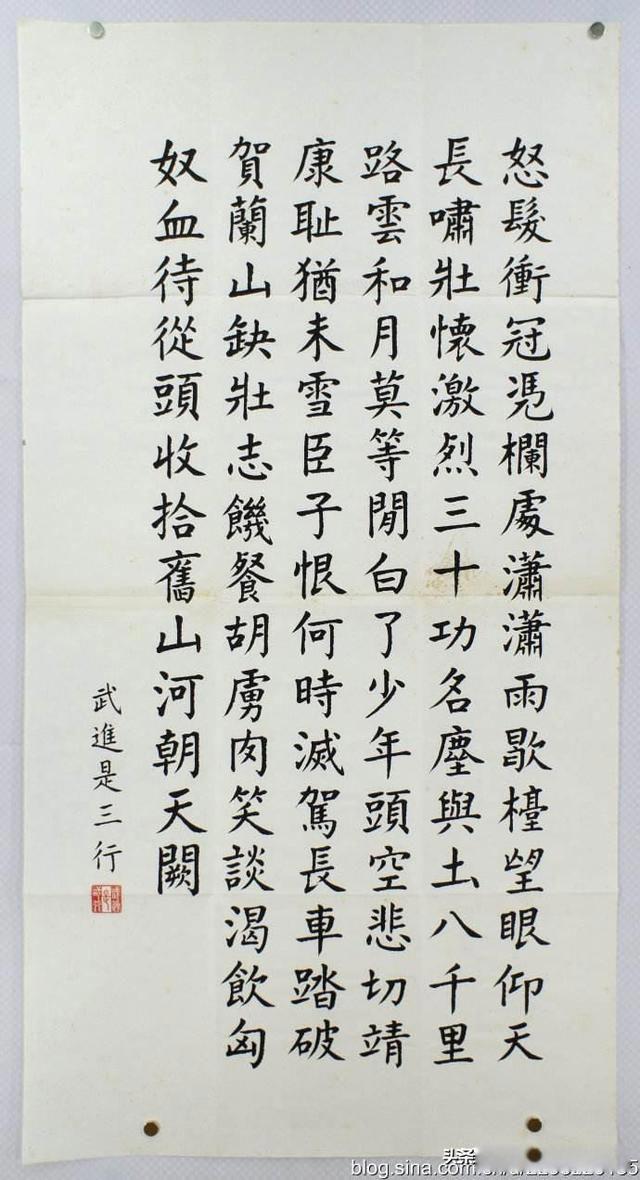 怒髮衝冠凭欄處瀟瀟雨歇檯望眼仰天
長嘯壯懷激烈三十功名塵與土八千里
路雲和月莫等閒白了少年頭空悲切靖
康耻猶未雪臣子恨何時滅駕長車踏破
賀蘭山缺壯志饑餐胡虜肉笑談渴飲匈
奴血待從頭收拾舊山河朝天闕
武進是三行
头条
blog.sina.com.cn